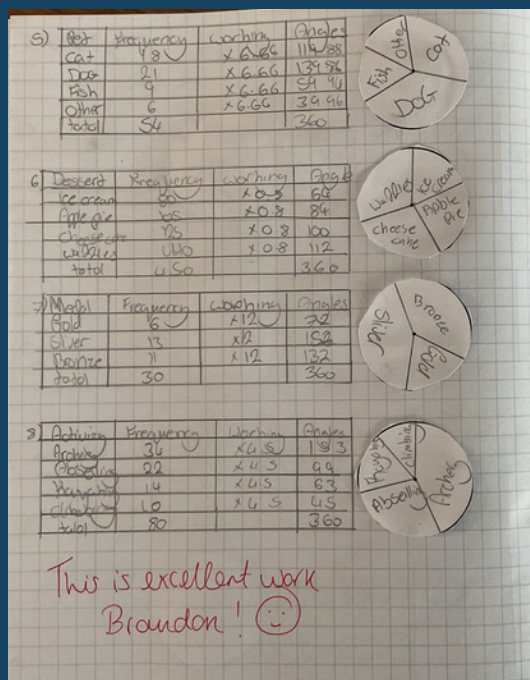 5) Pet Frequency Working Angles
Cat 18 ×6.66 119.88
DoG 21 ×6.66 139.86
Fish 9 ×6.66 59.94
Other 6 ×6.66 39.96
total 54 360
Other Cat
Fish DoG
6) Dessert Frequency Working Angle
Ice cream 80 ×0.8 64
Apple pie 105 ×0.8 84
cheese cake 125 ×0.8 100
waffles 140 ×0.8 112
total 450 360
waffles Ice cream
Apple
Pie
cheese
cake
7) Medal Frequency Working Angles
Gold 6 ×12 72
Silver 13 ×12
Bronze 11 ×12 132
total 30 360
Bronze
Gold
8) Activity Frequency Working Angles
Archery 34 ×4.5 153
22 ×4.5 99
14 ×4.5 63
climbing 10 ×4.5 45
total 80 360
climbing
Archery
This is excellent work
Brandon!